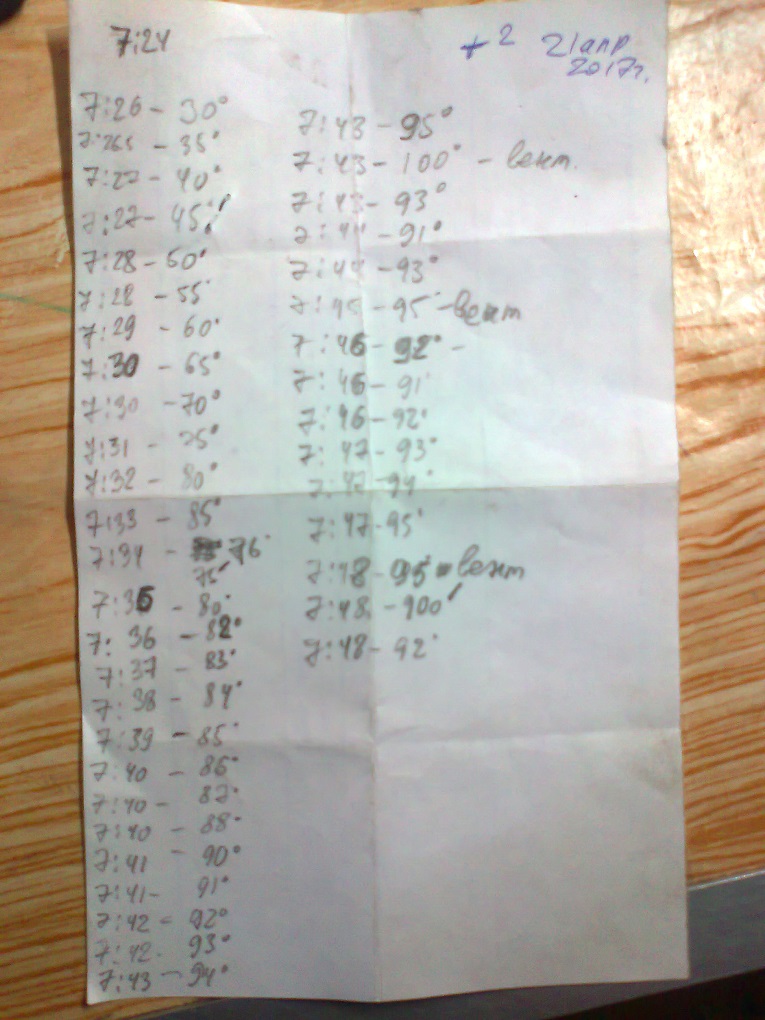 7:24
+2 21 апр
2017г.
7:26 - 30°
7:265 - 35°
7:27 - 40°
7:27 - 45°
7:28 - 50°
7:28 - 55
7:29 - 60°
7:30 - 65°
7:30 - 70°
7:31 - 75°
7:32 - 80°
7:33 - 85°
7:34 - 76°
75°
7:35 - 80°
7:36 - 82°
7:37 - 83°
7:38 - 84°
7:39 - 85°
7:40 - 86°
7:40 - 87°
7:40 - 88°
7:41 - 90°
7:41 - 91°
7:42 - 92°
7:42 - 93°
7:43 - 94°
7:43 - 95°
7:43 - 100° - вент.
7:43 - 93°
7:44 - 91°
7:44 - 93°
7:45 - 95° - вент
7:46 - 92° -
7:46 - 91°
7:46 - 92°
7:47 - 93°
7:47 - 94°
7:47 - 95°
7:48 - 95° - вент
7:48 - 100°
7:48 - 92°